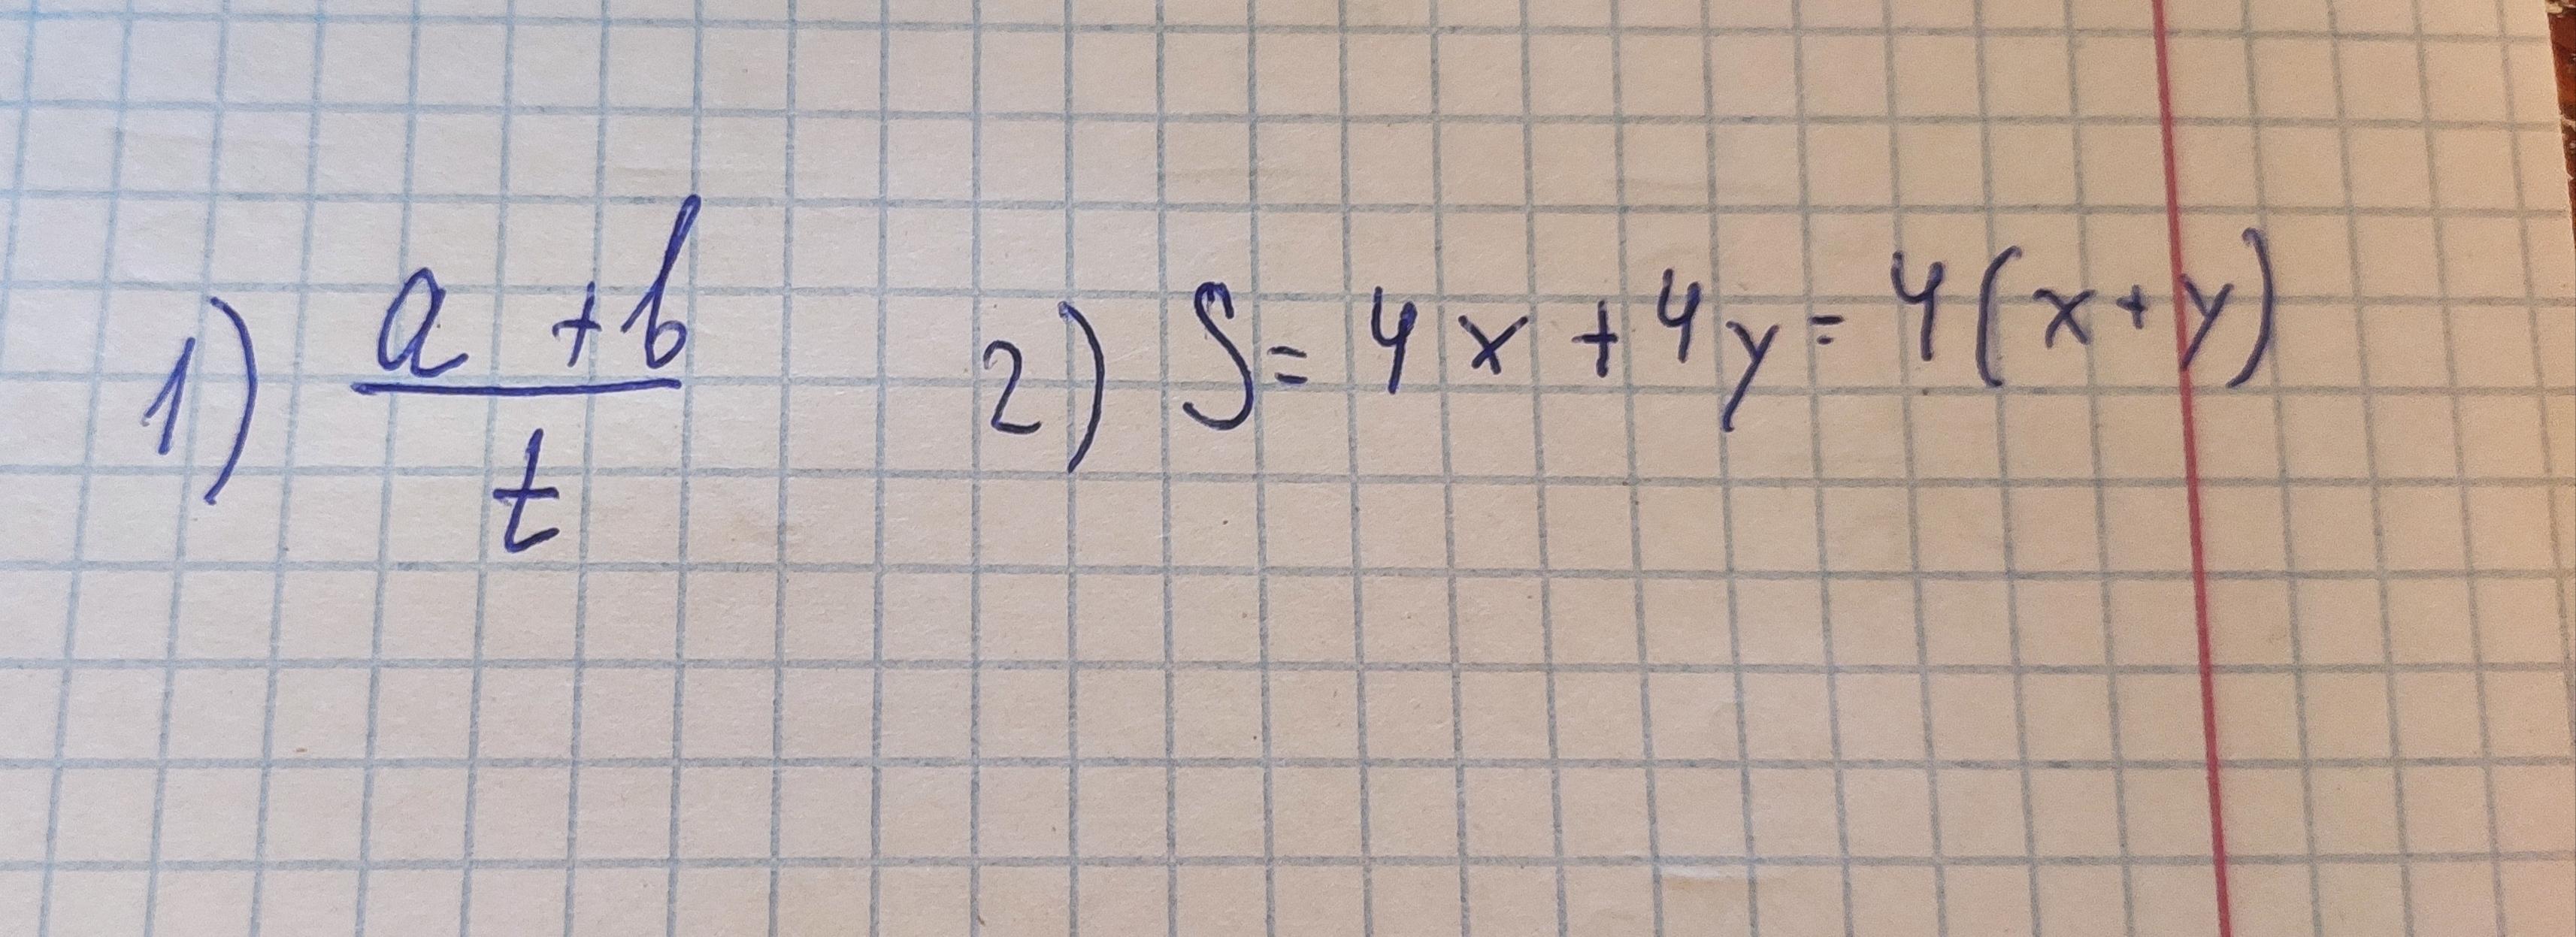 1) (a + b) / t
2) S = 4x + 4y = 4(x + y)